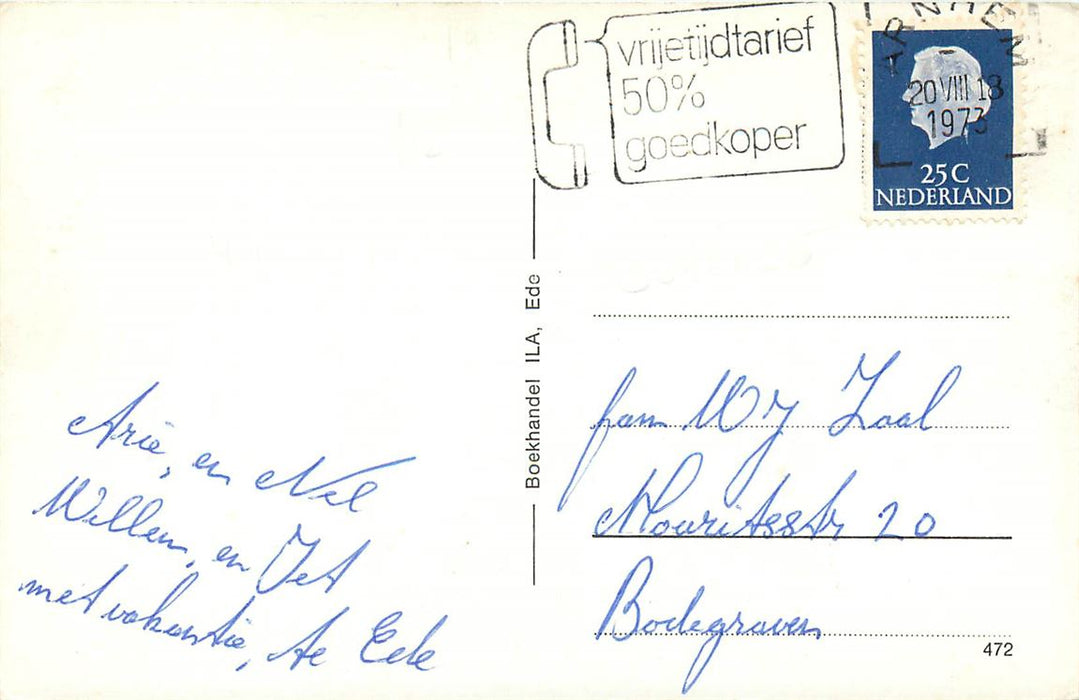 vrijetijdtarief
50%
goedkoper
ARNHEM
20 VIII 18
1973
25 C
NEDERLAND
Boekhandel ILA, Ede
Arie, en Nel
Willem, en Jet
met vakantie, te Ede
fam W J Zaal
Mouritsstr 20
Bodegraven
472